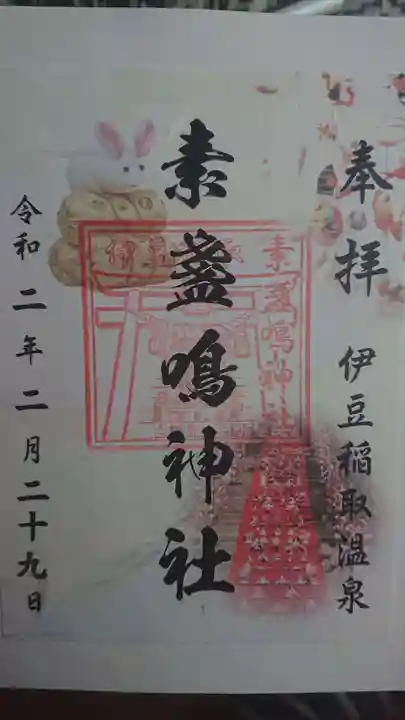 奉拝 伊豆稲取温泉
素盞鳴神社
令和二年二月二十九日
素盞鳴神社